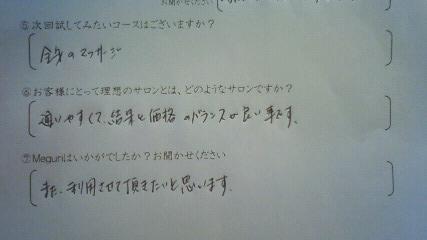 お聞かせください
⑤次回試してみたいコースはございますか?
全身のマッサージ
⑥お客様にとって理想のサロンとは、どのようなサロンですか?
通いやすくて、結果と価格のバランスが良い事です。
⑦Meguriはいかがでしたか?お聞かせください
また、利用させて頂きたいと思います。